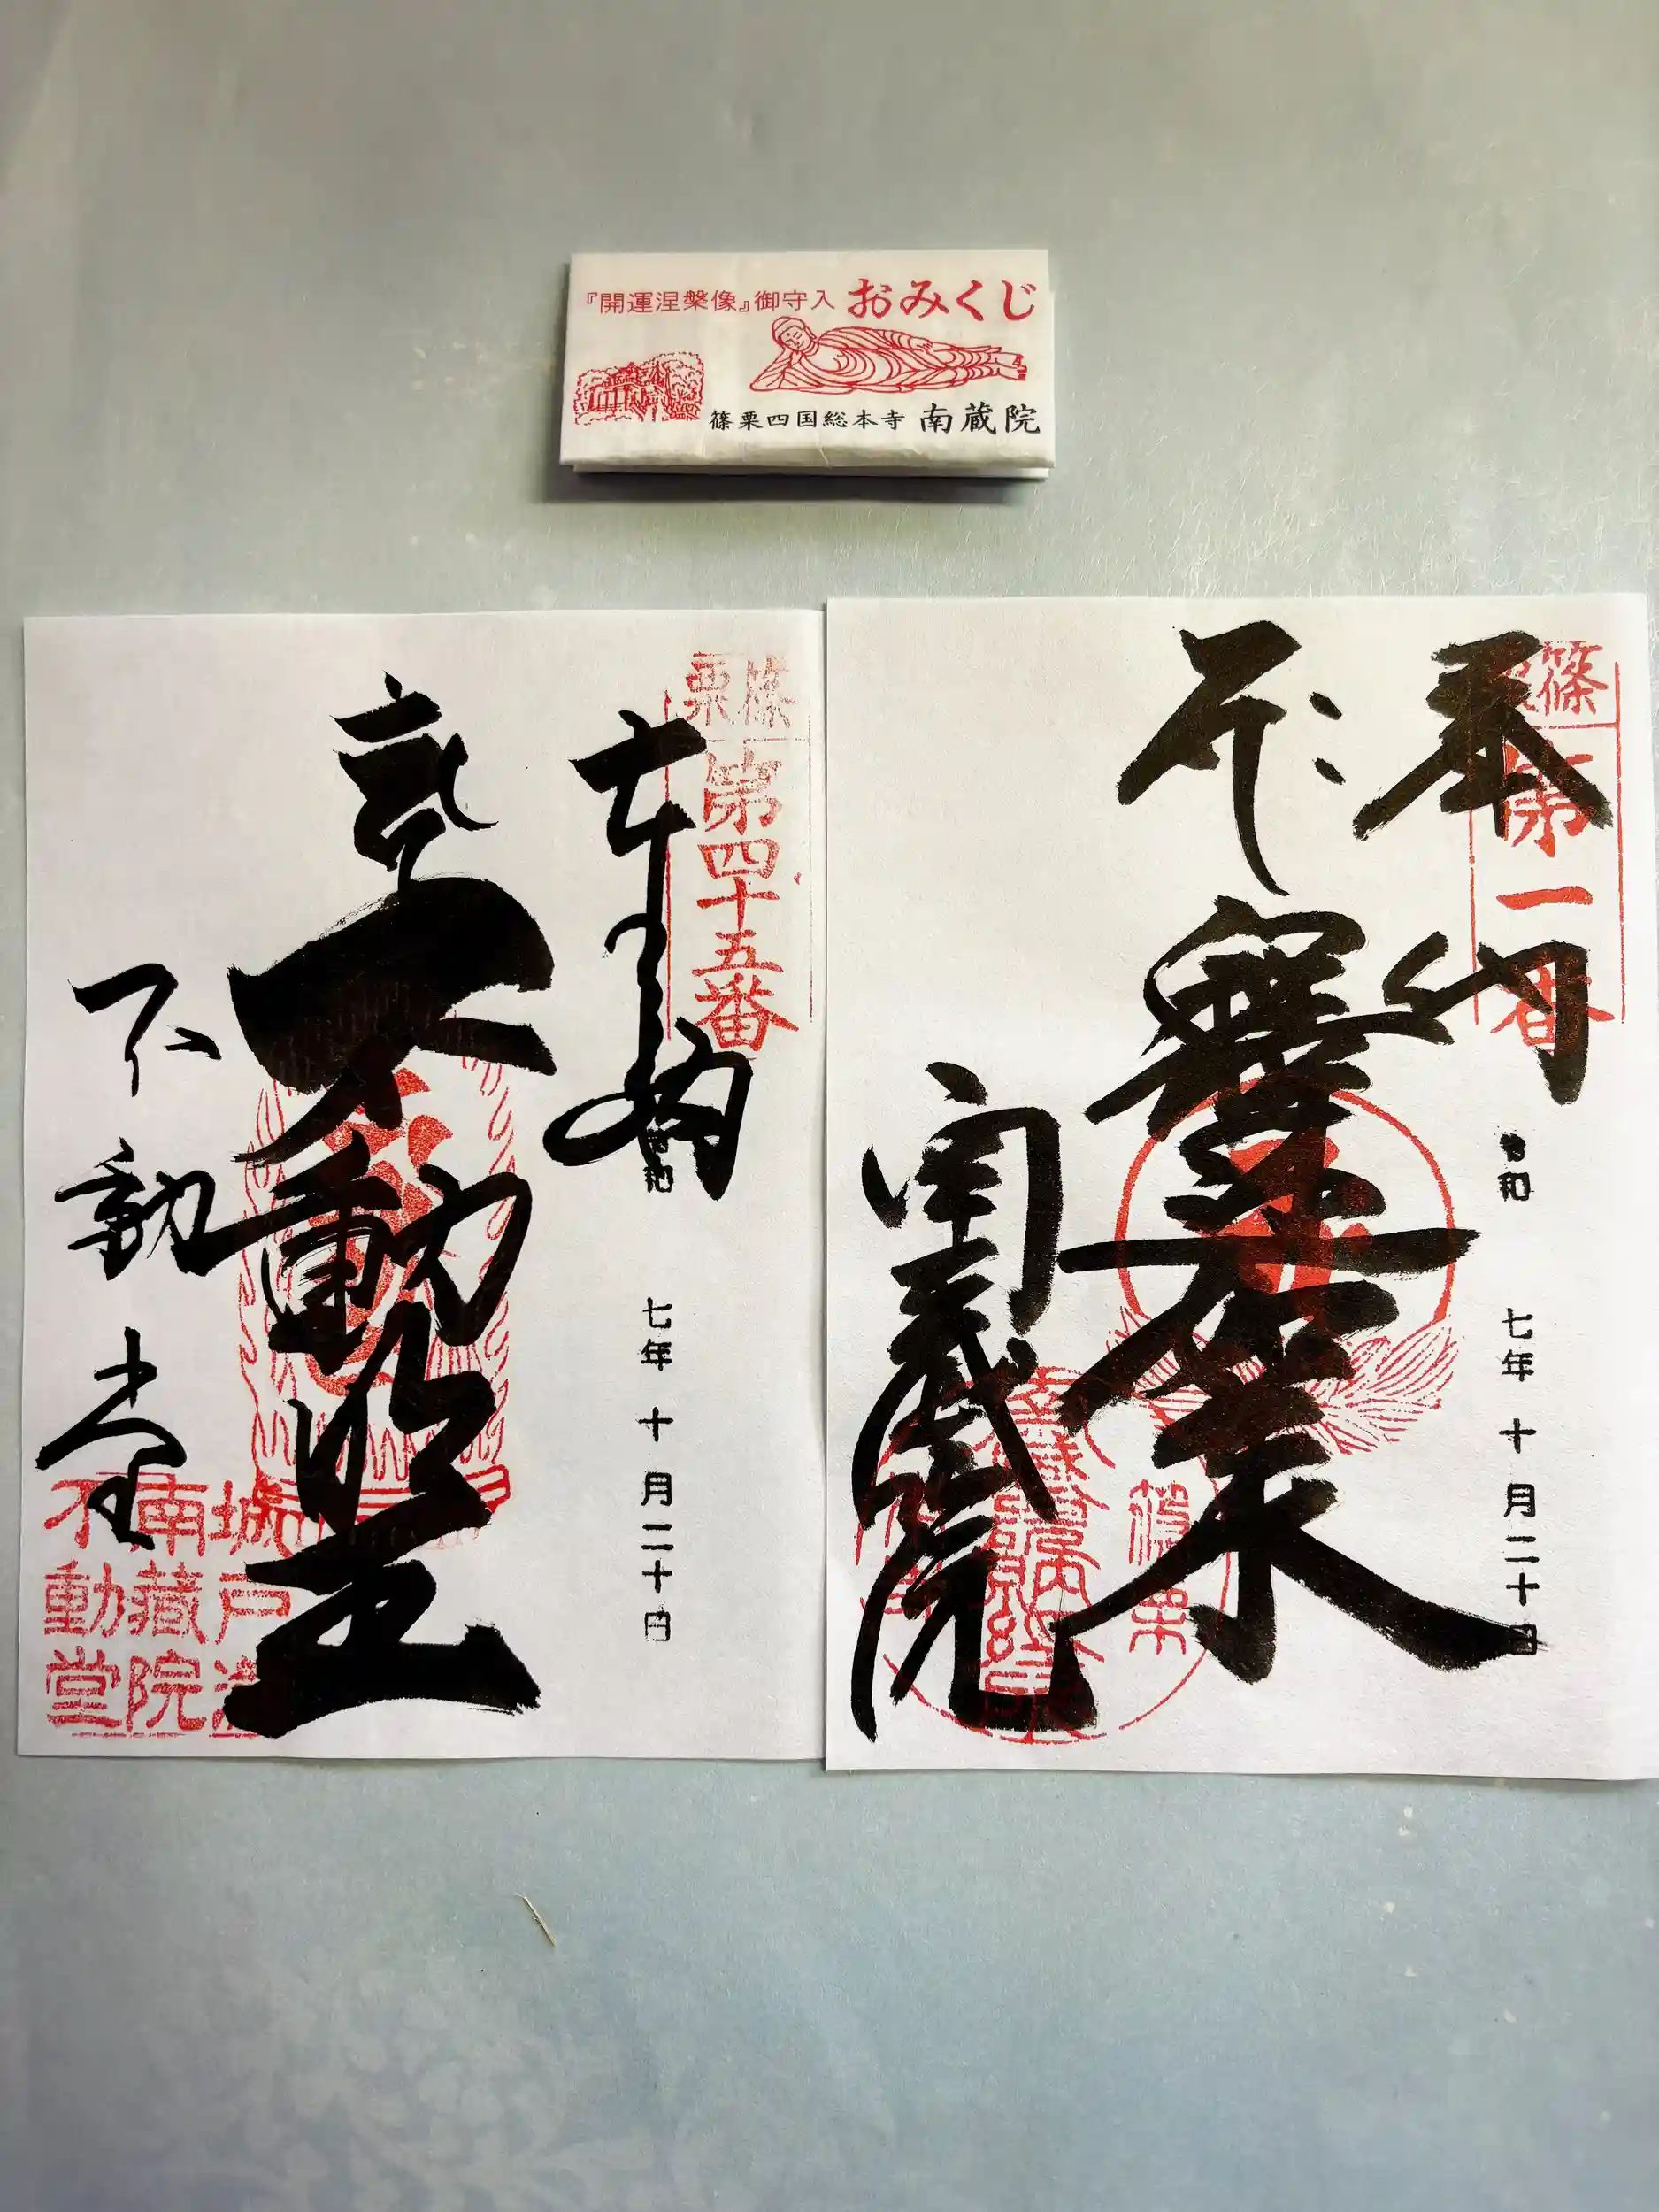 『開運涅槃像』御守入 おみくじ
篠栗四国総本寺 南蔵院
篠栗
第一番
奉納
釋迦如来
南蔵院
令和 七年 十月二十日
篠栗
第四十五番
奉納
大不動明王
不動堂
令和 七年 十月二十日
城戸
南蔵院
不動堂